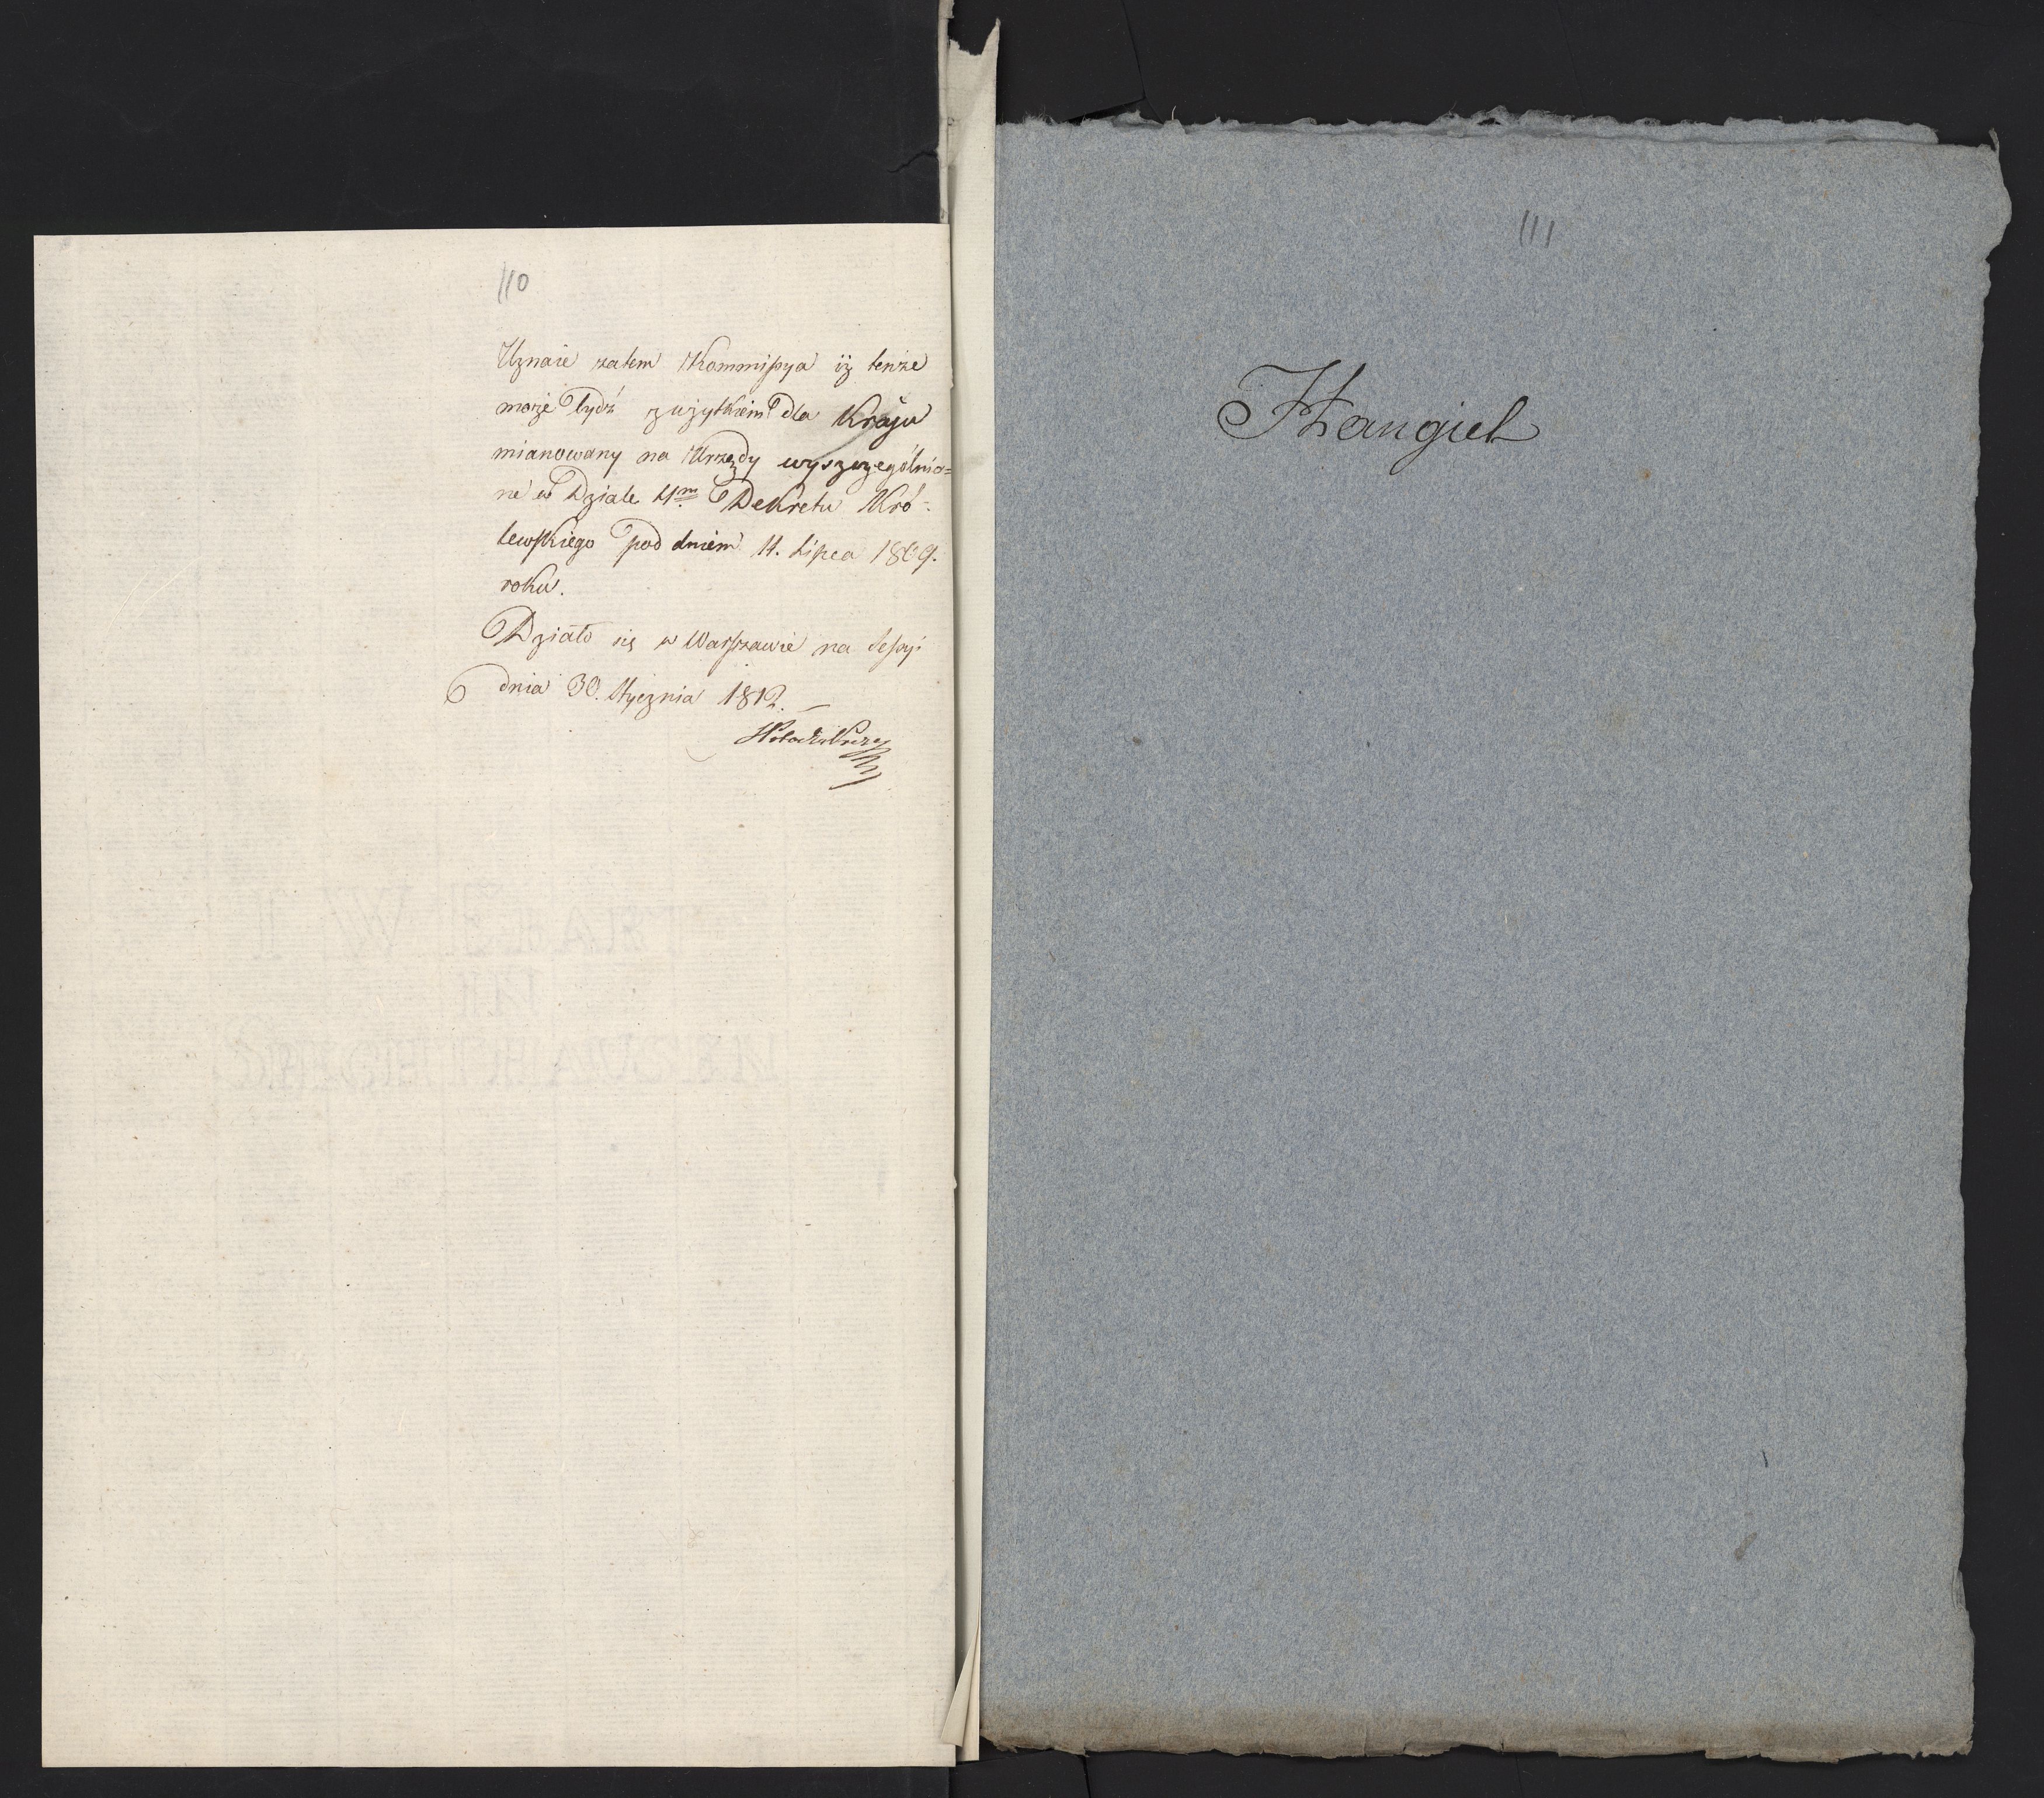 110
Uznaie zatem Kommissya iż tenże
może bydź z użytkiem dla Kraju
mianowany na Urzędy wyszczególnio=
ne w Dziale 4m. Dekretu Kró-
lewskiego pod dniem 11. Lipca 1809.
roku.
Działo się w Warszawie na Sessyi
dnia 30. Stycznia 1812.
111
Hangiel